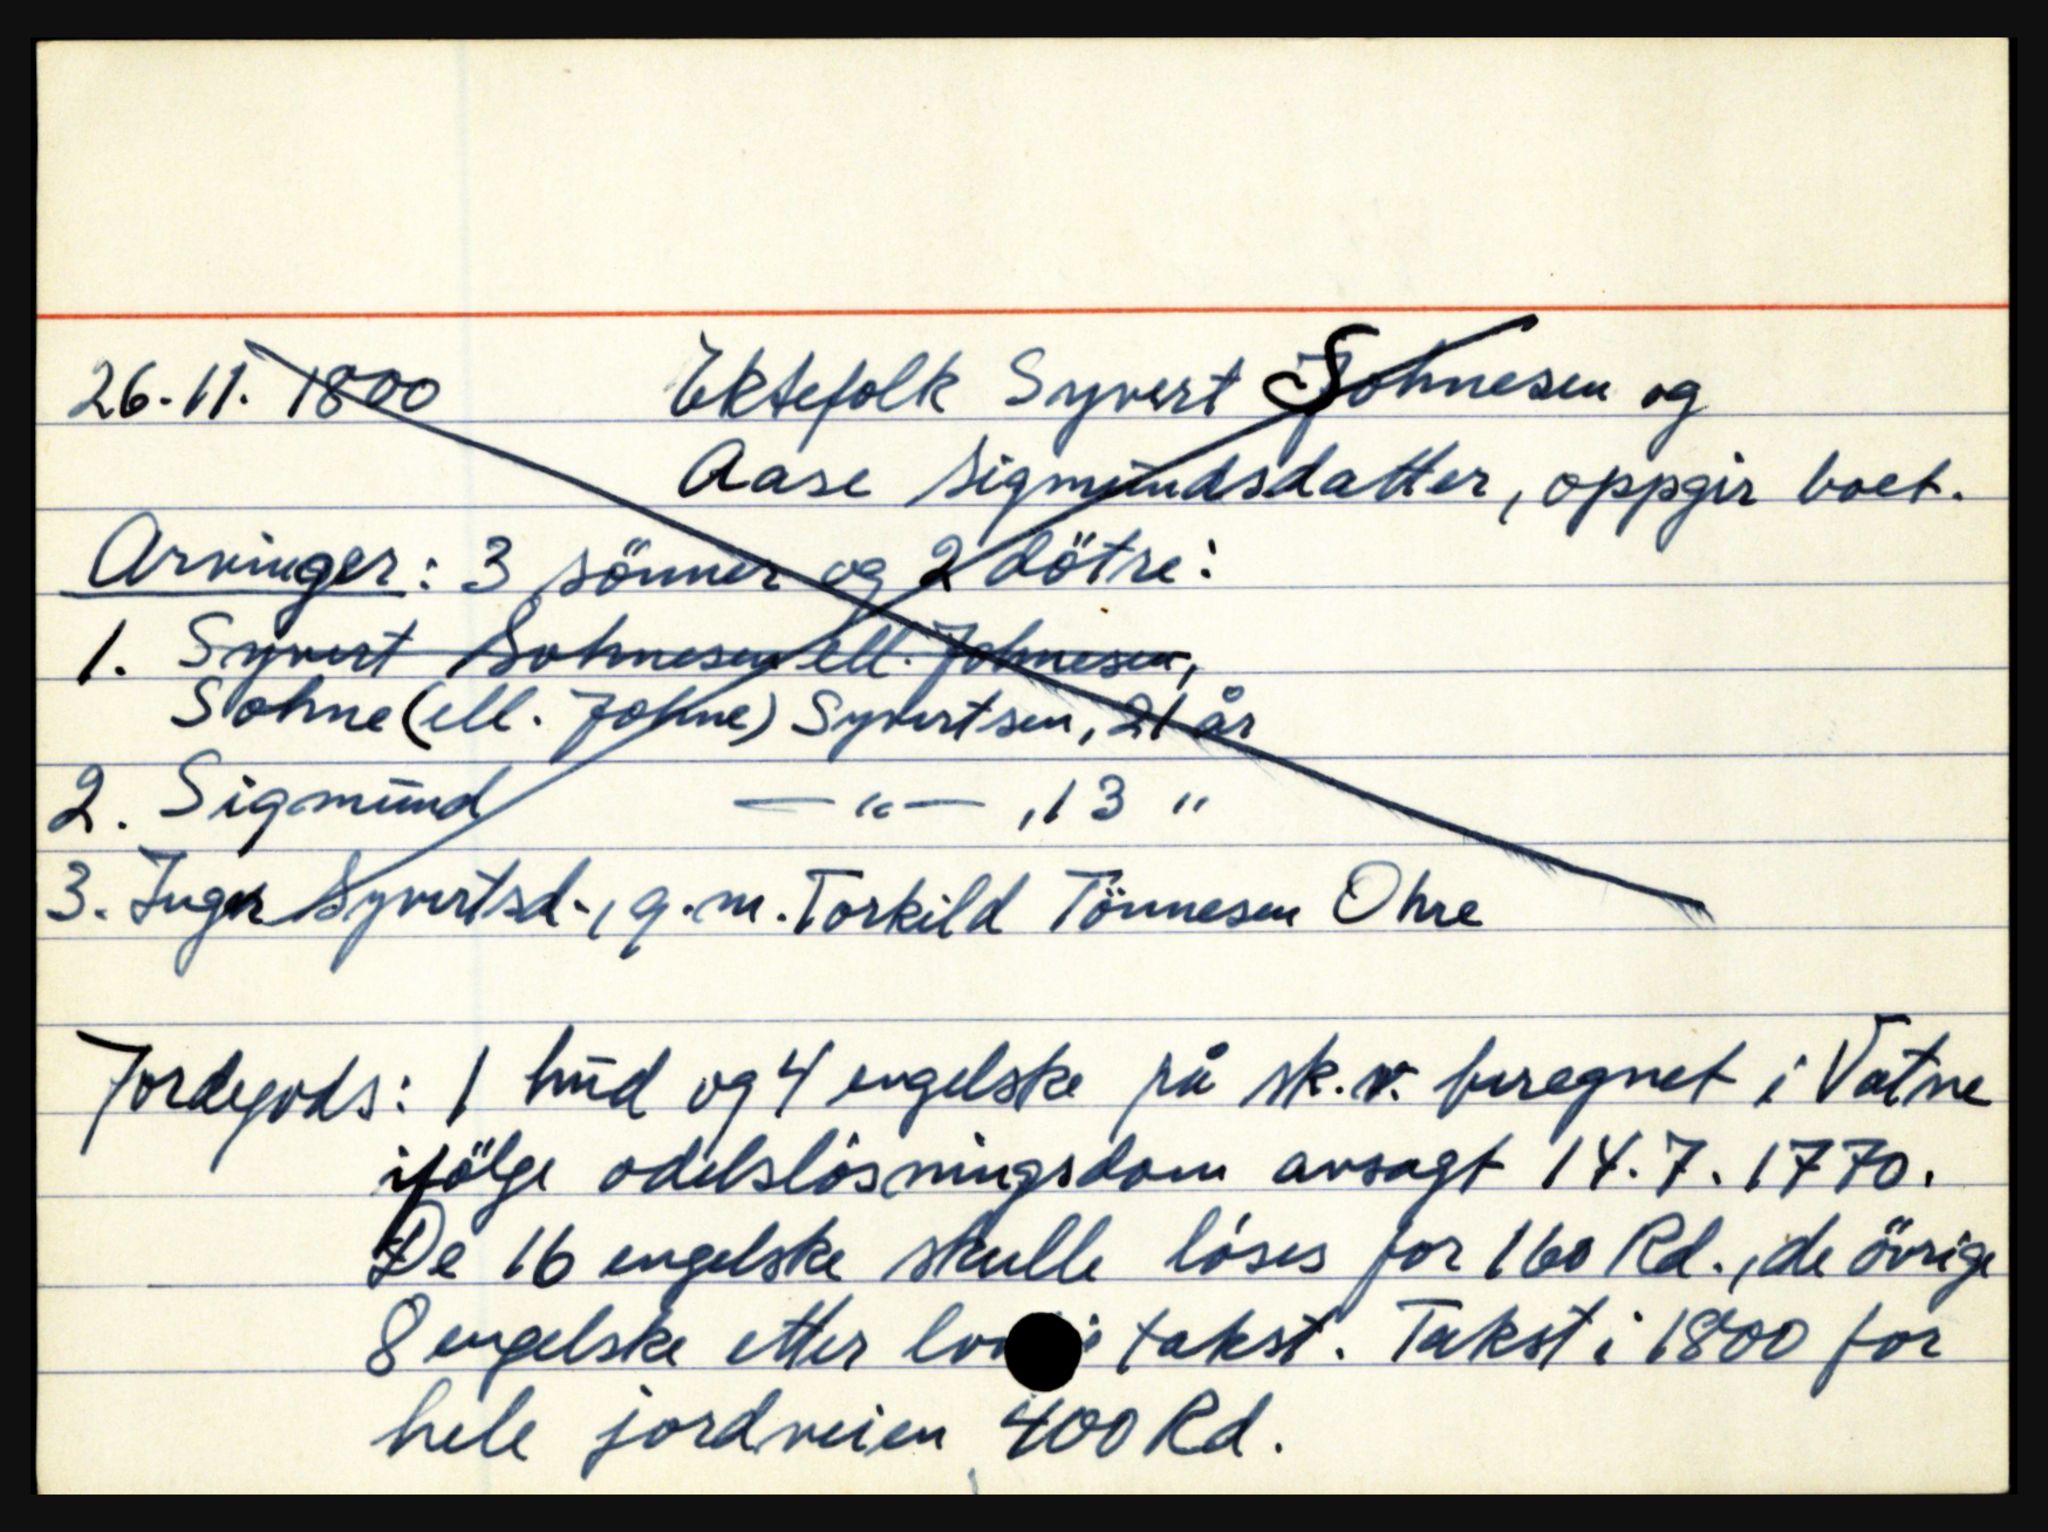 26.11.1800 Ektefolk Syvert Sohnesen og
Aase Sigmundsdatter, oppgir boet.
Arvinger: 3 sönner og 2 dötre:
1. Syvert Sohnesen ell. Johnesen,
Sohne (ell. Johne) Syvertsen, 21 år
2. Sigmund —"— , 13 "
3. Inger Syvertsd., g.m. Torkild Tönnesen Ohre
Jordegods: 1 hud og 4 engelske på sk.v. beregnet i Vatne
ifölge odelslösningsdom avsagt 14.7.1770.
De 16 engelske skulle löses for 160 Rd., de övrige
8 engelske etter takst. Takst i 1800 for
hele jordveien 400 Rd.